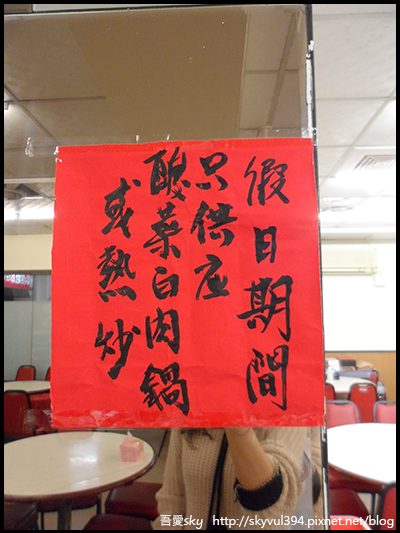 假日期間
只供应
酸菜白肉鍋
或熱炒
吾愛sky http://skyvul394.pixnet.net/blog